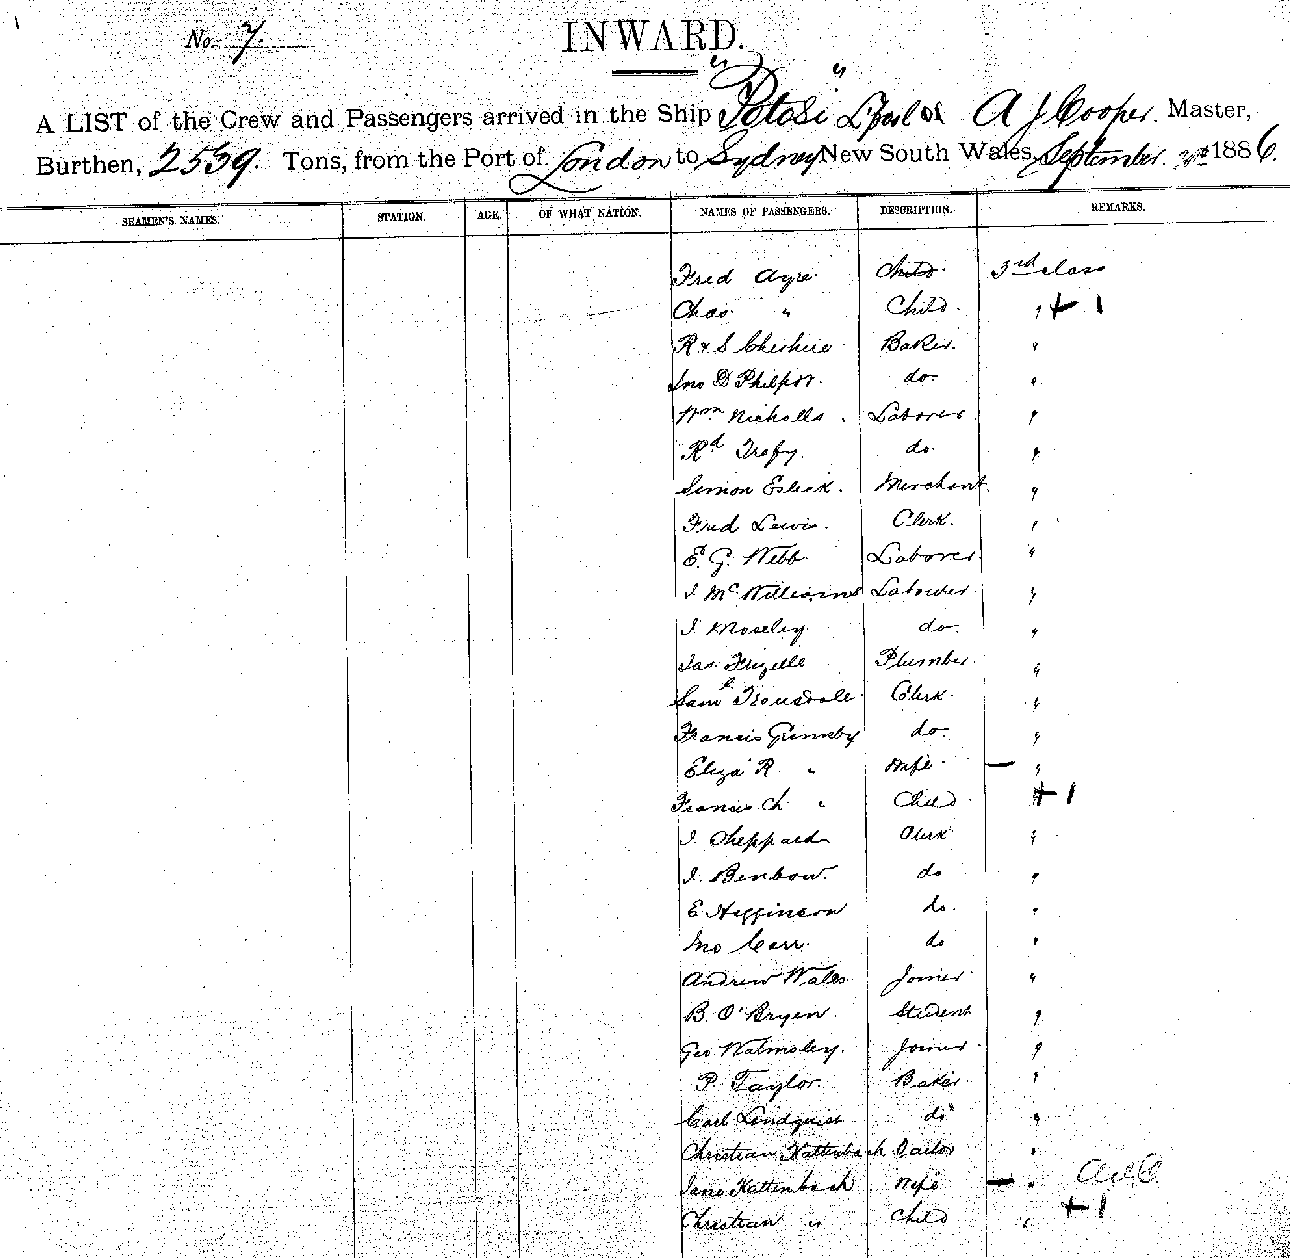 No. 7.
INWARD.
A LIST of the Crew and Passengers arrived in the Ship "Potosi" L'pool of A J Cooper. Master,
Burthen, 2539. Tons, from the Port of London to Sydney New South Wales, September 1886.
SEAMEN'S NAMES. STATION. AGE. OF WHAT NATION. NAMES OF PASSENGERS. DESCRIPTION. REMARKS.
Fred Ayre Child 3rd class
Chas " Child " + 1
R & S Cheshire Baker "
Jno D Philpott do "
Wm Nicholls Laborer "
Rd do "
Simon Merchant "
Fred Lewis Clerk "
E. G. Webb Laborer "
J McWilliams Labourer "
J Moseley do "
Jas Frizelle Plumber "
Saml Trousdale Clerk "
Francis Grimsby do "
Eliza R " Wife — "
Francis Ch " Child + 1
J. Sheppard Clerk "
J. Benbow do "
E Higginson do "
Jno Carr do "
Andrew Wales Joiner "
B. O'Bryen Student "
Geo Walmsley Joiner "
P. Taylor Baker "
Carl Lindquist do "
Christian Kattenbach Tailor "
Jane Kattenbach Wife — "
Christian " Child " + 1